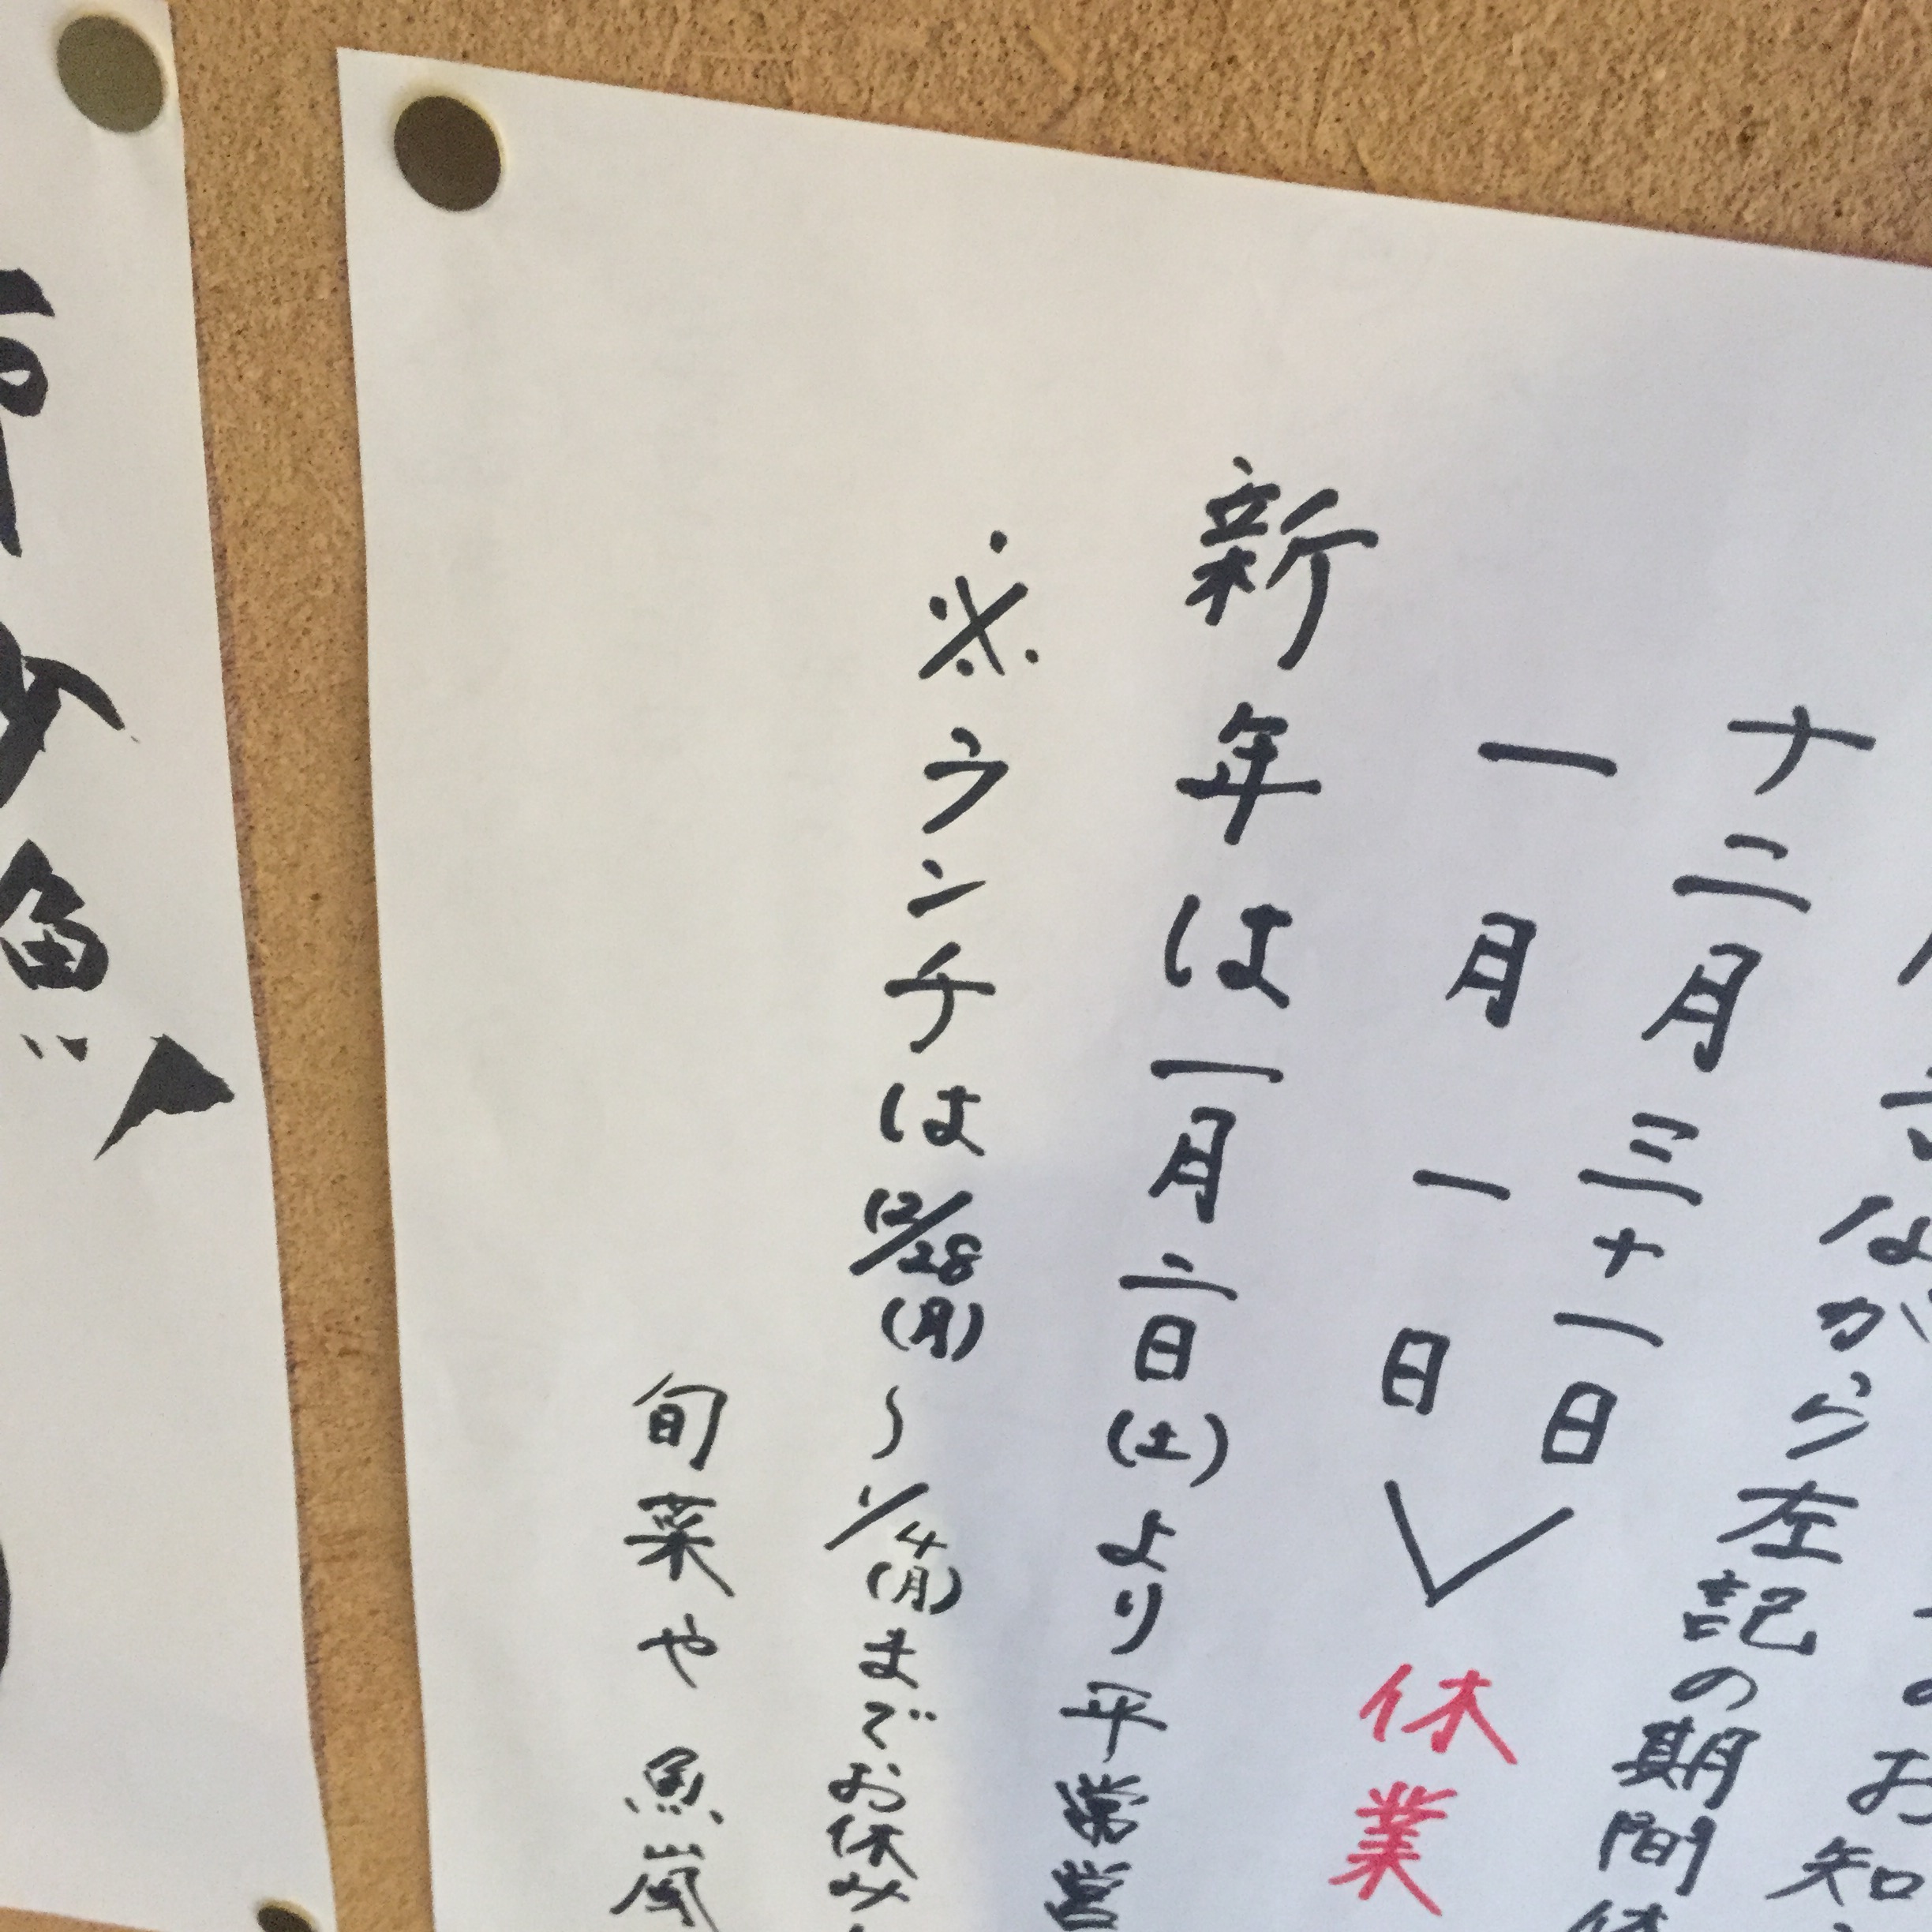 のお知
ながら左記の期間休
十二月三十一日
一月一日
休業
新年は一月二日(土)より平常営
※ランチは12/28(月)〜1/4(月)までお休み
旬菜や 魚嵐
魚